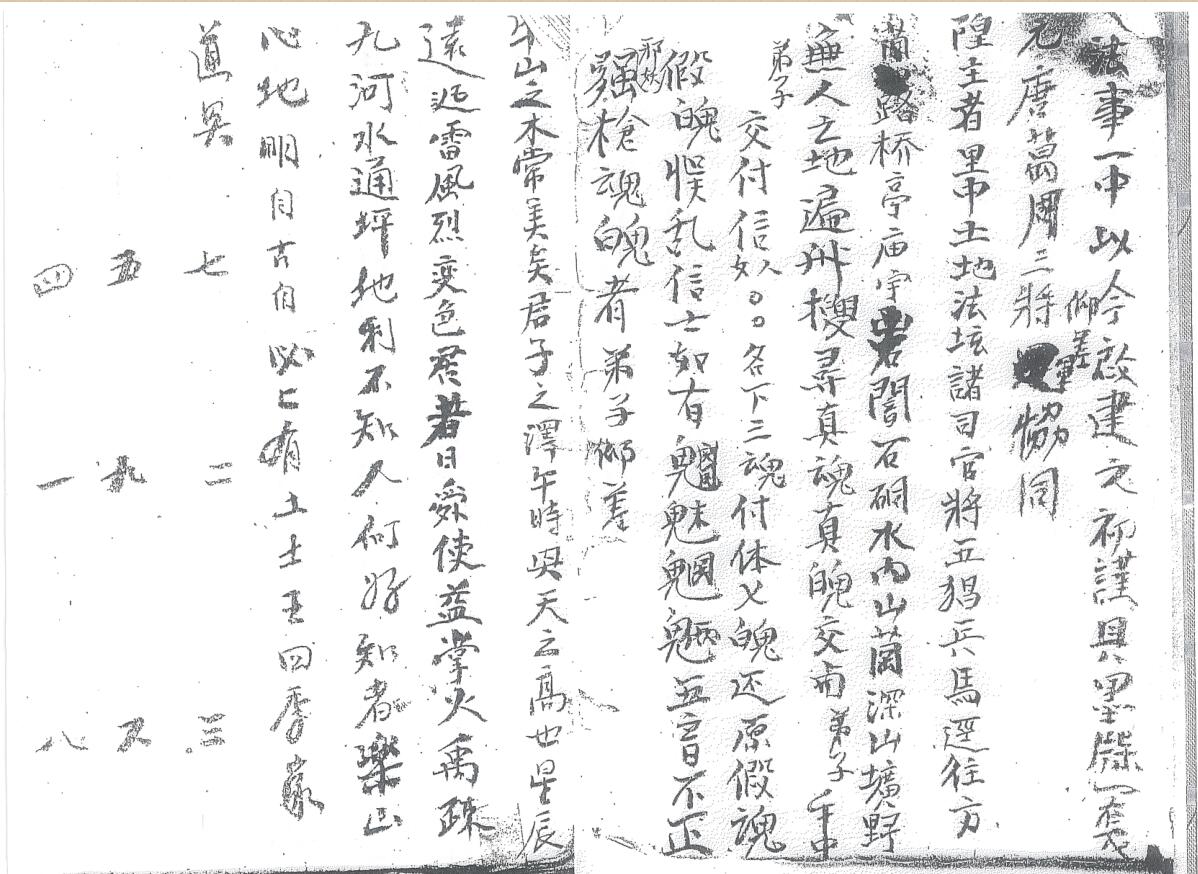 法事一中以今啟建之初謹具墨牒一套
仰差
元唐葛周三將協同
隍土者里中土地法坛諸司官將五猖兵馬逕往方
路桥亭庙宇岩誾石硐水内山蘭深山壙野
無人之地遍州搜尋真魂真魄交南弟子手中
弟子
交付信人女〇〇名下三魂付体七魄还原假魂
假魄悮乱信士如有魑魅魍魎五音不正
邪妖
强槍魂魄者弟子仰差
牛山之木常美矣君子之澤午時與天之高也星辰
遠迅雷風烈变色君若日舜使益掌火禹疎
九河水通坪地利不知人何好知者樂山
心地明自古自必亡有土土王四季
道矣
七 二 三
五 九 又
四 一 八